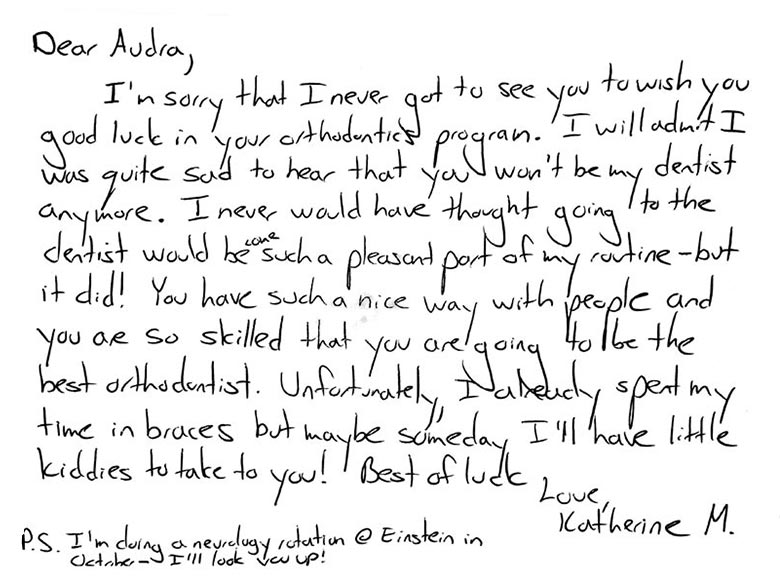 Dear Audra,
I'm sorry that I never got to see you to wish you
good luck in your orthodontics program. I will admit I
was quite sad to hear that you won't be my dentist
anymore. I never would have thought going to the
dentist would become such a pleasant part of my routine - but
it did! You have such a nice way with people and
you are so skilled that you are going to be the
best orthodontist. Unfortunately, I already spent my
time in braces but maybe someday I'll have little
kiddies to take to you! Best of luck
Love,
Katherine M.
P.S. I'm doing a neurology rotation @ Einstein in
October - I'll look you up!